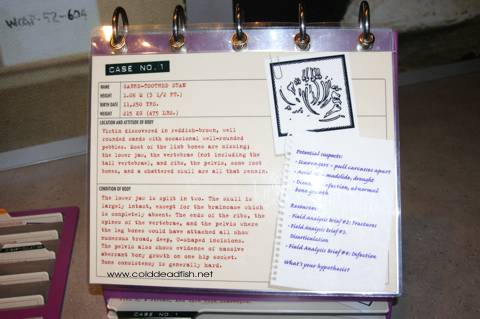 CASE NO. 1
NAME SABRE-TOOTHED STAN
HEIGHT 1.06 M (3 1/2 FT.)
BIRTH DATE 11,250 YRS.
WEIGHT 215 KG (475 LBS.)
LOCATION AND ATTITUDE OF BODY
Victim discovered in reddish-brown, well
rounded sands with occasional well-rounded
pebbles. Most of the limb bones are missing;
the lower jaw, the vertebrae (not including the
tail vertebrae), and ribs, the pelvis, some foot
bones, and a shattered skull are all that remain.
CONDITION OF BODY
The lower jaw is split in two. The skull is
largely intact, except for the braincase which
is completely absent. The ends of the ribs, the
spines of the vertebrae, and the pelvis where
the leg bones would have attached all show
numerous broad, deep, U-shaped incisions.
The pelvis also shows evidence of massive
aberrant bony growth on one hip socket.
Bone consistency is generally hard.
Potential suspects:
- Scavengers - pull carcasses apart
- mudslide, drought
- infection, abnormal
bone growth
Resources:
- Field Analysis Brief #2: Fractures
- Field Analysis Brief #3:
Disarticulation
- Field Analysis Brief #4: Infection
What's your hypothesis?
www.colddeadfish.net
CASE NO. 1